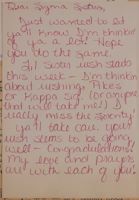 Dear Sigma Sisters,
Just wanted to let
ya'll know I'm thinkin'
of ya a lot! Hope
you do the same.
Lil' sister rush starts
this week - I'm thinkin
about rushing Pikes
or Kappa Sig (or anyone
that will take me!) I
really miss the seventy!
ya'll take care,
rush seems to be going
well - Congradulations!
My love and prayers
are with each of you.